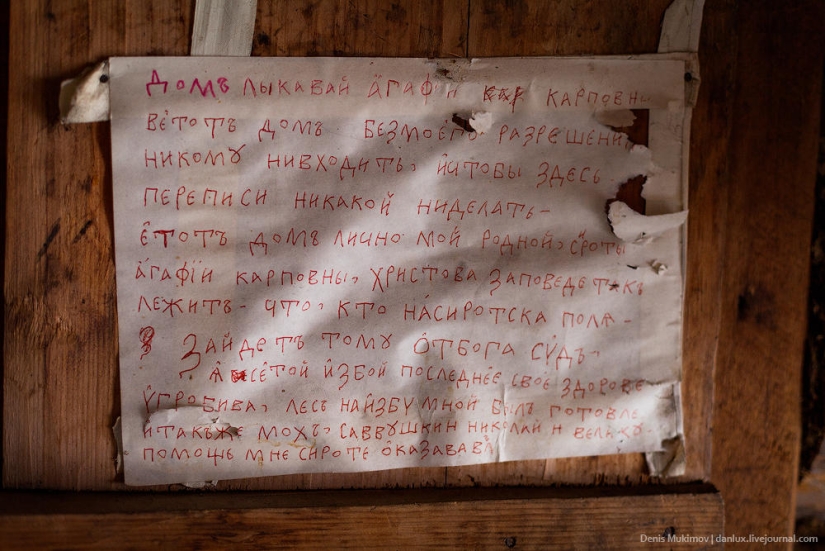 ДОМЪ ЛЫКАВАЙ АГАФЇИ КАРПОВНЫ
ВЕТОТЪ ДОМЪ БЕЗМОЕГО РАЗРЕШЕНИ
НИКОМꙊ НИВХОДИТЬ, ИЧТОБЫ ЗДЕСЬ
ПЕРЕПИСИ НИКАКОЙ НИДЕЛАТЬ-
ЕТОТЪ ДОМЪ ЛИЧНО МОЙ РОДНОЙ, СРОТЫ
АГАФЇИ КАРПОВНЫ, ХРИСТОВА ЗАПОВЕДЕ ТАКЪ
ЛЕЖИТЬ- ЧТО, КТО НАСИРОТСКА ПОЛѦ-
ЗАЙДЕТЪ ТОМꙊ ОТБОГА СꙊДЪ-
Ѧ СЕТОЙ ИЗБОЙ ПОСЛЕДНЕЕ СВОЕ ЗДОРОВЕ
ꙊГРОБИВА, ЛЕСЪ НАИЗБꙊ МНОЙ БЫЛЪ ГОТОВЛЕ
ИТАКЪЖЕ МОХЪ, САВВꙊШКИН НИКОЛАЙ Н
ПОМОЩЬ МНЕ СИРОТЕ ОКАЗАВАВ
Denis Mukimov | danlux.livejournal.com